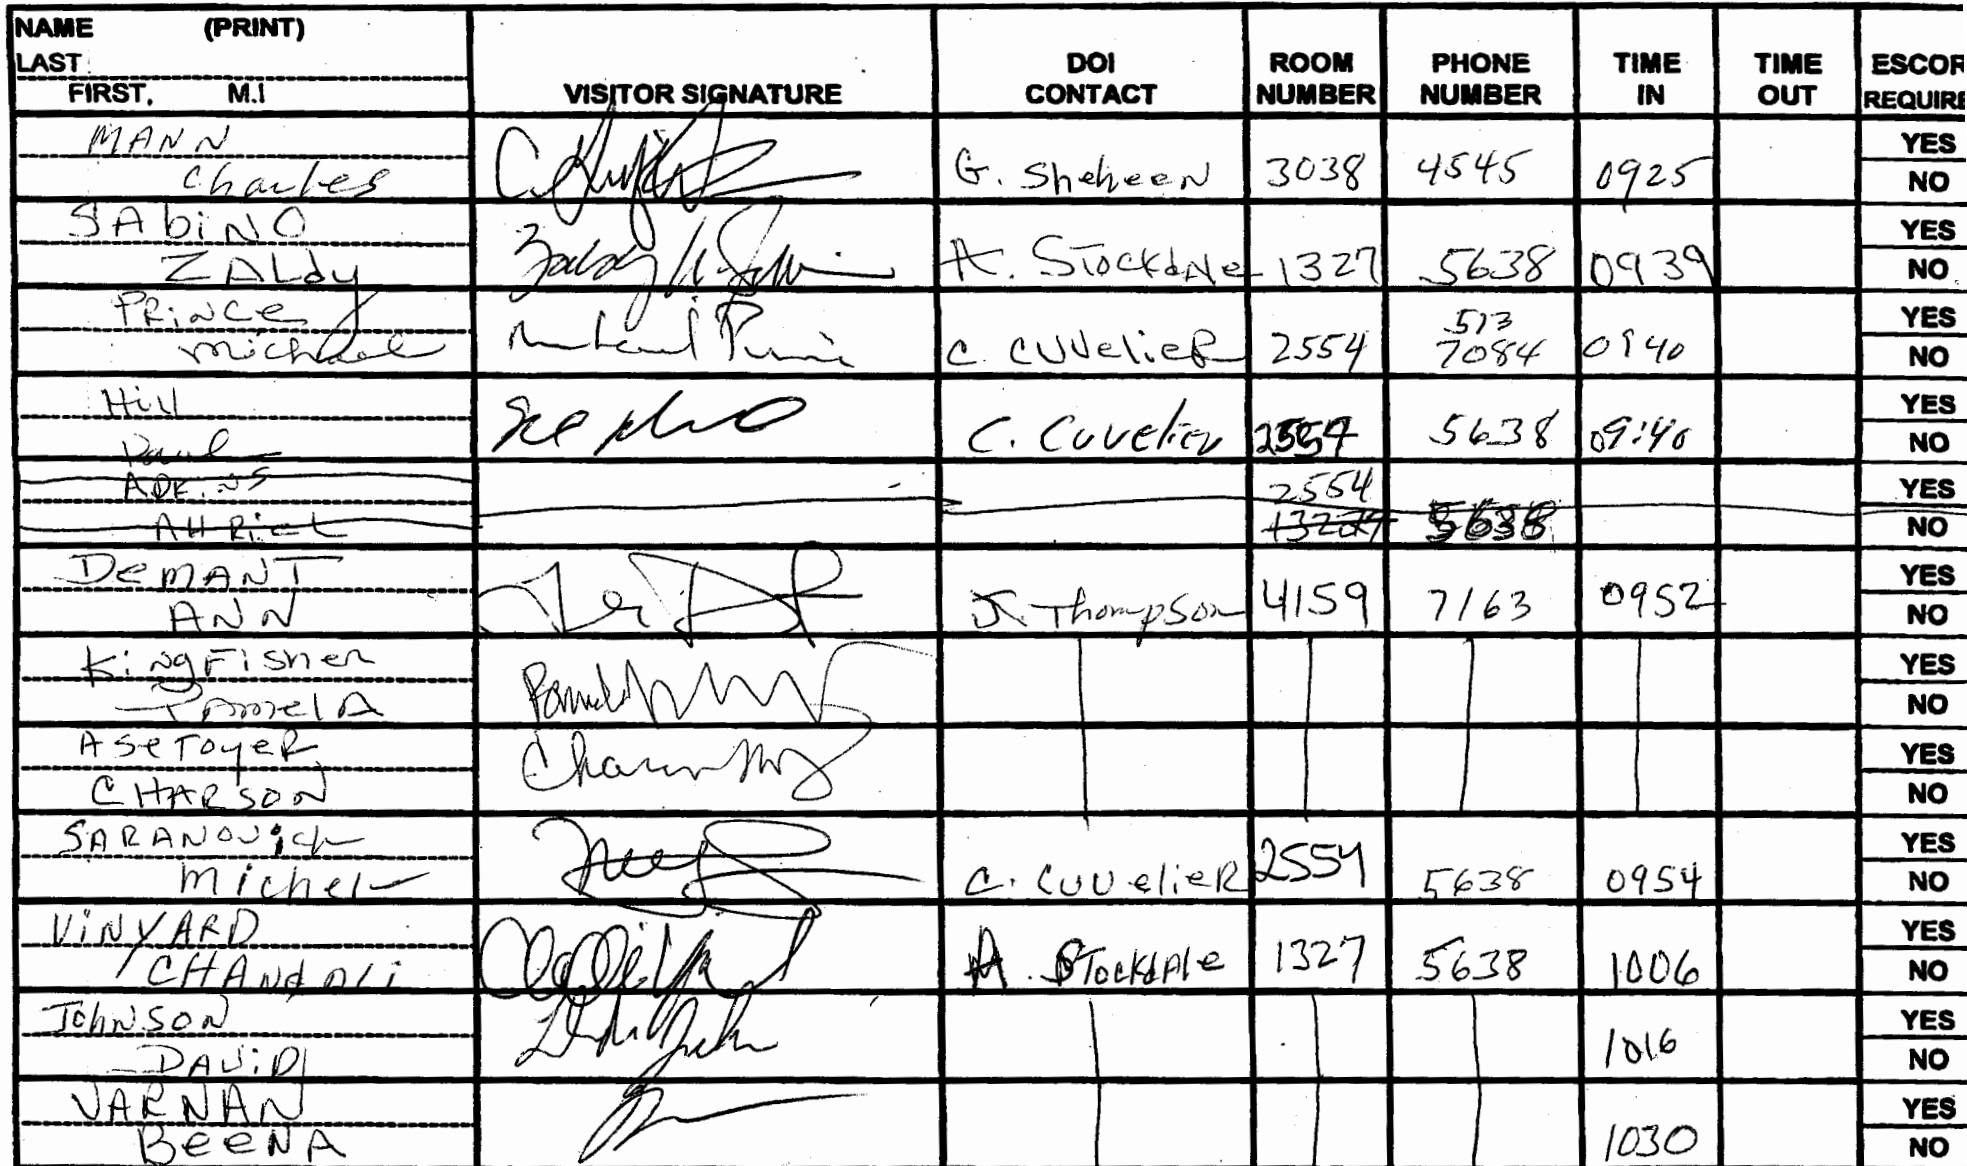 NAME (PRINT)
LAST
FIRST, M.I
VISITOR SIGNATURE
DOI CONTACT
ROOM NUMBER
PHONE NUMBER
TIME IN
TIME OUT
ESCOR
REQUIRE
MANN
Charles
G. Sheheen 3038 4545 0925
YES
NO
SAbiNO
ZALdy
A. Stockdale 1327 5638 0939
YES
NO
PRiNce
michael
Michael Prince
C. CUVelieR 2554 573 7084 0940
YES
NO
Hill
Paul
C. Cuvelier 2554 5638 09:40
YES
NO
ADKiNS
2554
5638
YES
NO
DeMANT
ANN
J. Thompson 4159 7163 0952
YES
NO
KiNgFisher
PamelA
YES
NO
ASeToyeR
CHARSON
YES
NO
SARANOVich
Michel
C. CUVelieR 2554 5638 0954
YES
NO
ViNYARD
CHANdALi
A. Stockdale 1327 5638 1006
YES
NO
JohNSON
DAViD
1016
YES
NO
VARNAN
BeeNA
1030
YES
NO